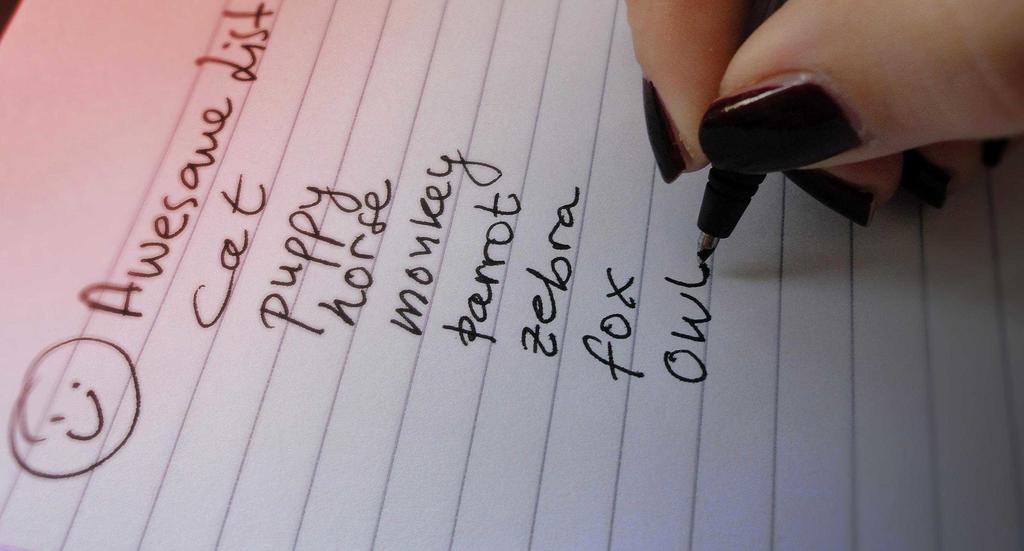 Awesome list
cat
puppy
horse
monkey
parrot
zebra
fox
owl